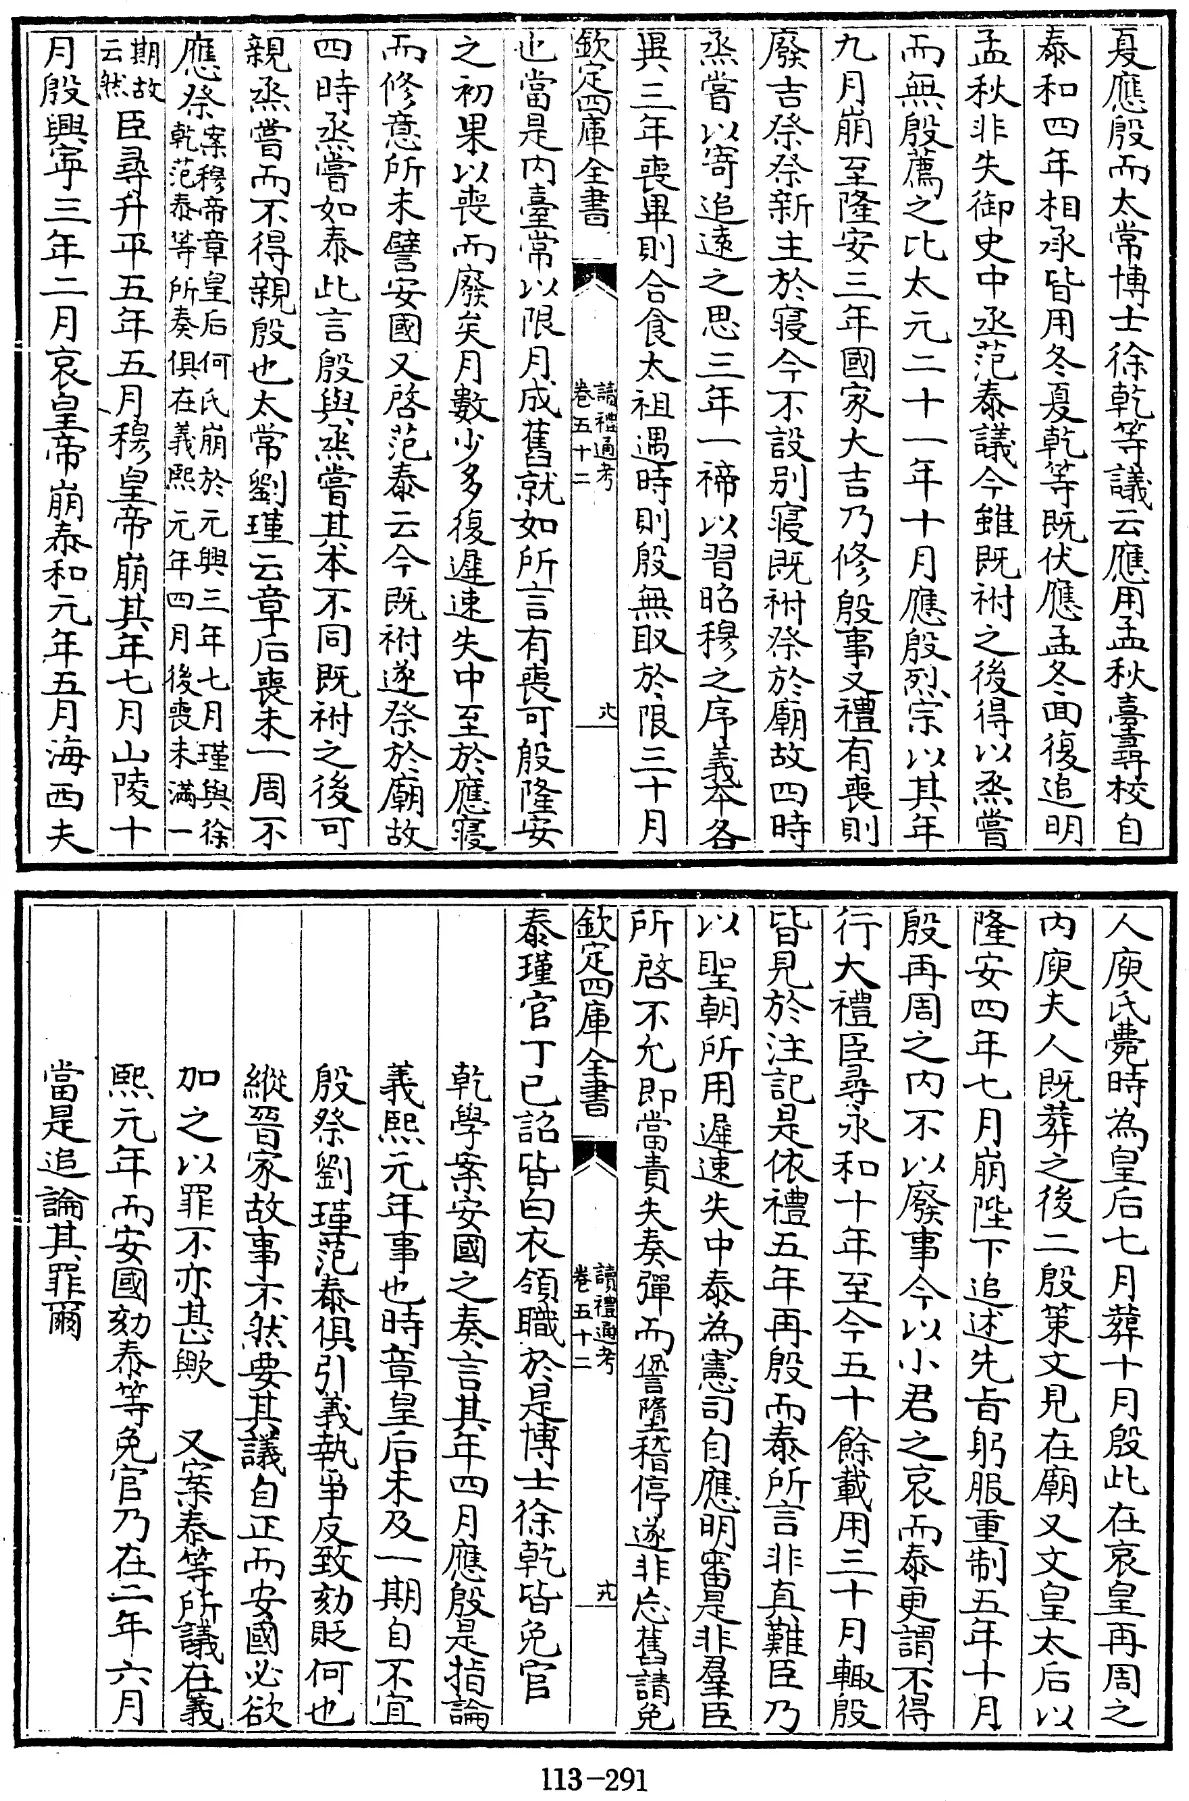 夏應殷而太常博士徐乾等議云應用孟秋臺尋校自
泰和四年相承皆用冬夏乾等既伏應孟冬面復追明
孟秋非失御史中丞范泰議今雖既祔之後得以烝嘗
而無殷薦之比太元二十一年十月應殷烈宗以其年
九月崩至隆安三年國家大吉乃修殷事又禮有喪則
廢吉祭祭新主於寢今不設别寢既祔祭於廟故四時
烝嘗以寄追遠之思三年一禘以習昭穆之序義本各
異三年喪畢則合食太祖遇時則殷無取於限三十月
欽定四庫全書 讀禮通考 卷五十二
也當是内臺常以限月成舊就如所言有喪可殷隆安
之初果以喪而廢矣月數少多復遲速失中至於應寢
而修意所未譬安國又啓范泰云今既祔遂祭於廟故
四時烝嘗如泰此言殷與烝嘗其本不同既祔之後可
親烝嘗而不得親殷也太常劉瑾云章后喪未一周不
應祭案穆帝章皇后何氏崩於元興三年七月瑾與徐乾范泰等所奏俱在義熙元年四月後喪未滿一
期故云然臣尋升平五年五月穆皇帝崩其年七月山陵十
月殷興寧三年二月哀皇帝崩泰和元年五月海西夫
人庾氏薨時為皇后七月葬十月殷此在哀皇再周之
内庾夫人既葬之後二殷策文見在廟又文皇太后以
隆安四年七月崩陛下追述先㫖躬服重制五年十月
殷再周之内不以廢事今以小君之哀而泰更謂不得
行大禮臣尋永和十年至今五十餘載用三十月輙殷
皆見於注記是依禮五年再殷而泰所言非真難臣乃
以聖朝所用遲速失中泰為憲司自應明審是非羣臣
所啓不允即當責失奏彈而僁墮稽停遂非忘舊請免
欽定四庫全書 讀禮通考 卷五十二
泰瑾官丁巳詔皆白衣領職於是博士徐乾皆免官
乾學案安國之奏言其年四月應殷是指論
義熙元年事也時章皇后未及一期自不宜
殷祭劉瑾范泰俱引義執爭反致劾貶何也
縱晉家故事不然要其議自正而安國必欲
加之以罪不亦甚歟 又案泰等所議在義
熙元年而安國劾泰等免官乃在二年六月
當是追論其罪爾
113-291